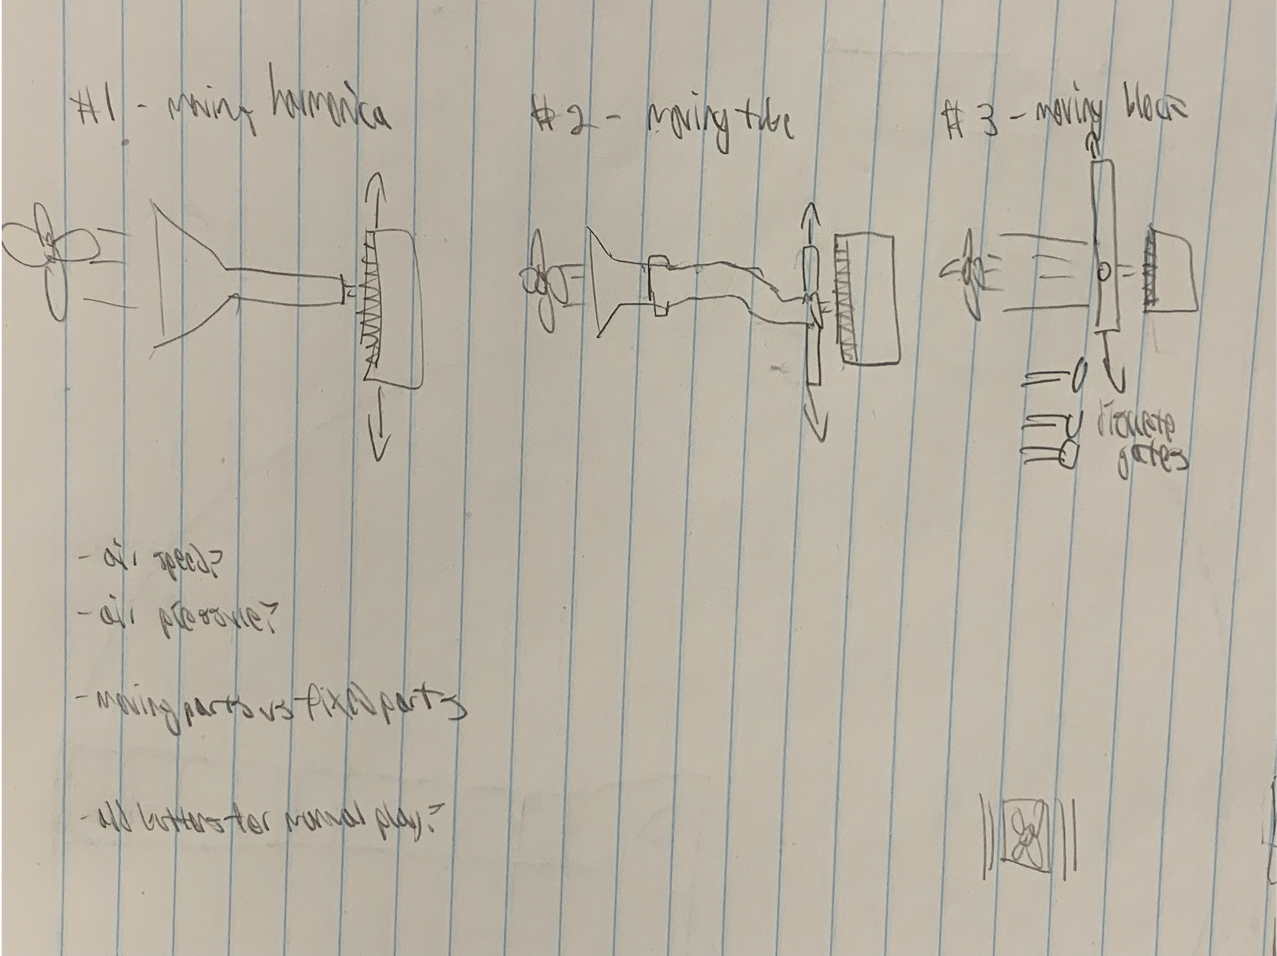 #1 - moving harmonica
#2 - moving tube
#3 - moving block
discrete
gates
- air speed?
- air pressure?
- moving parts vs fixed parts
- add buttons for manual play?